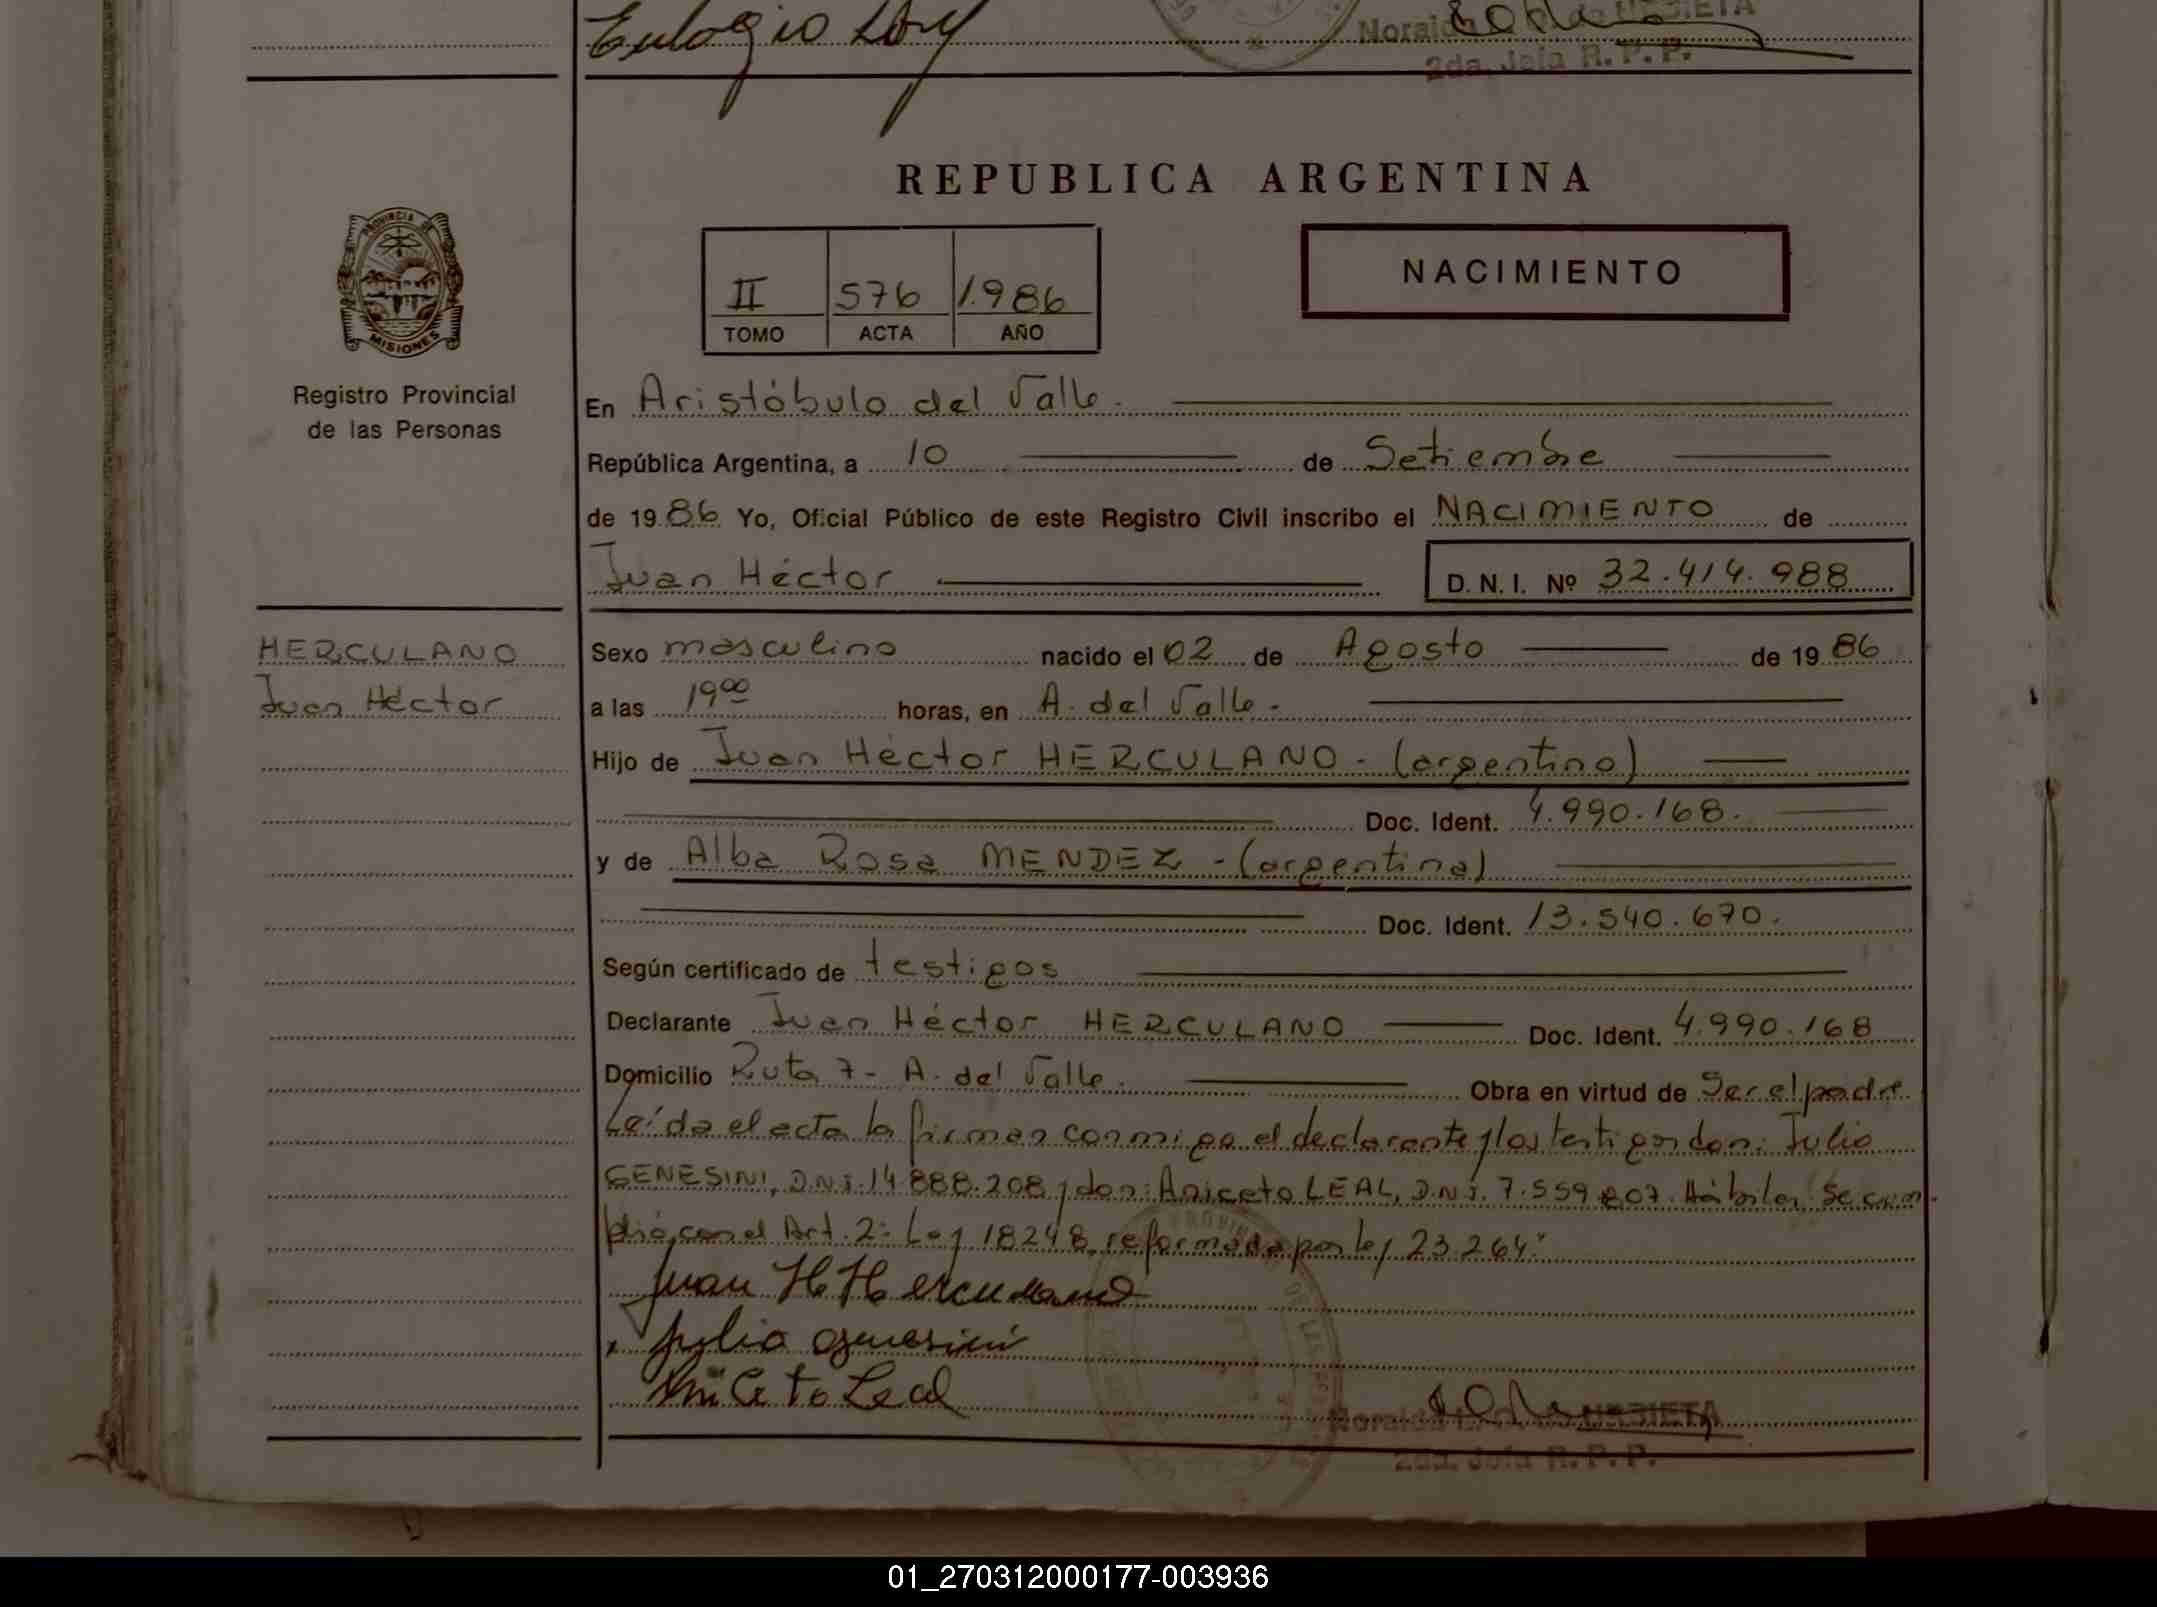 Eulogio
2da. Jefa R. P. P.
REPUBLICA ARGENTINA
PROVINCIA DE
MISIONES
II 576 1.986
TOMO ACTA AÑO
NACIMIENTO
Registro Provincial
de las Personas
En Aristóbulo del Valle.
República Argentina, a 10 de Setiembre
de 1986 Yo, Oficial Público de este Registro Civil inscribo el NACIMIENTO de
Juan Héctor D. N. I. Nº 32.414.988
HERCULANO
Juan Héctor
Sexo masculino nacido el 02 de Agosto de 1986
a las 19 00 horas, en A. del Valle.
Hijo de Juan Héctor HERCULANO - (argentino)
Doc. Ident. 4.990.168.
y de Alba Rosa MENDEZ - (argentina)
Doc. Ident. 13.540.670.
Según certificado de testigos
Declarante Juan Héctor HERCULANO Doc. Ident. 4.990.168
Domicilio Ruta 7 - A. del Valle. Obra en virtud de Ser el padre
Leída el acta la firman conmigo el declarante y los testigos don: Julio
GENESINI, D.N.I. 14.888.208 y don: Aniceto LEAL, D.N.I. 7.559.807. Hábiles. Se cum
plió con el Art. 2: Ley 18248, reformada por ley 23.264."
Juan H Herculano
Julio Genesini
Aniceto Leal
2da. Jefa R. P. P.
01_270312000177-003936